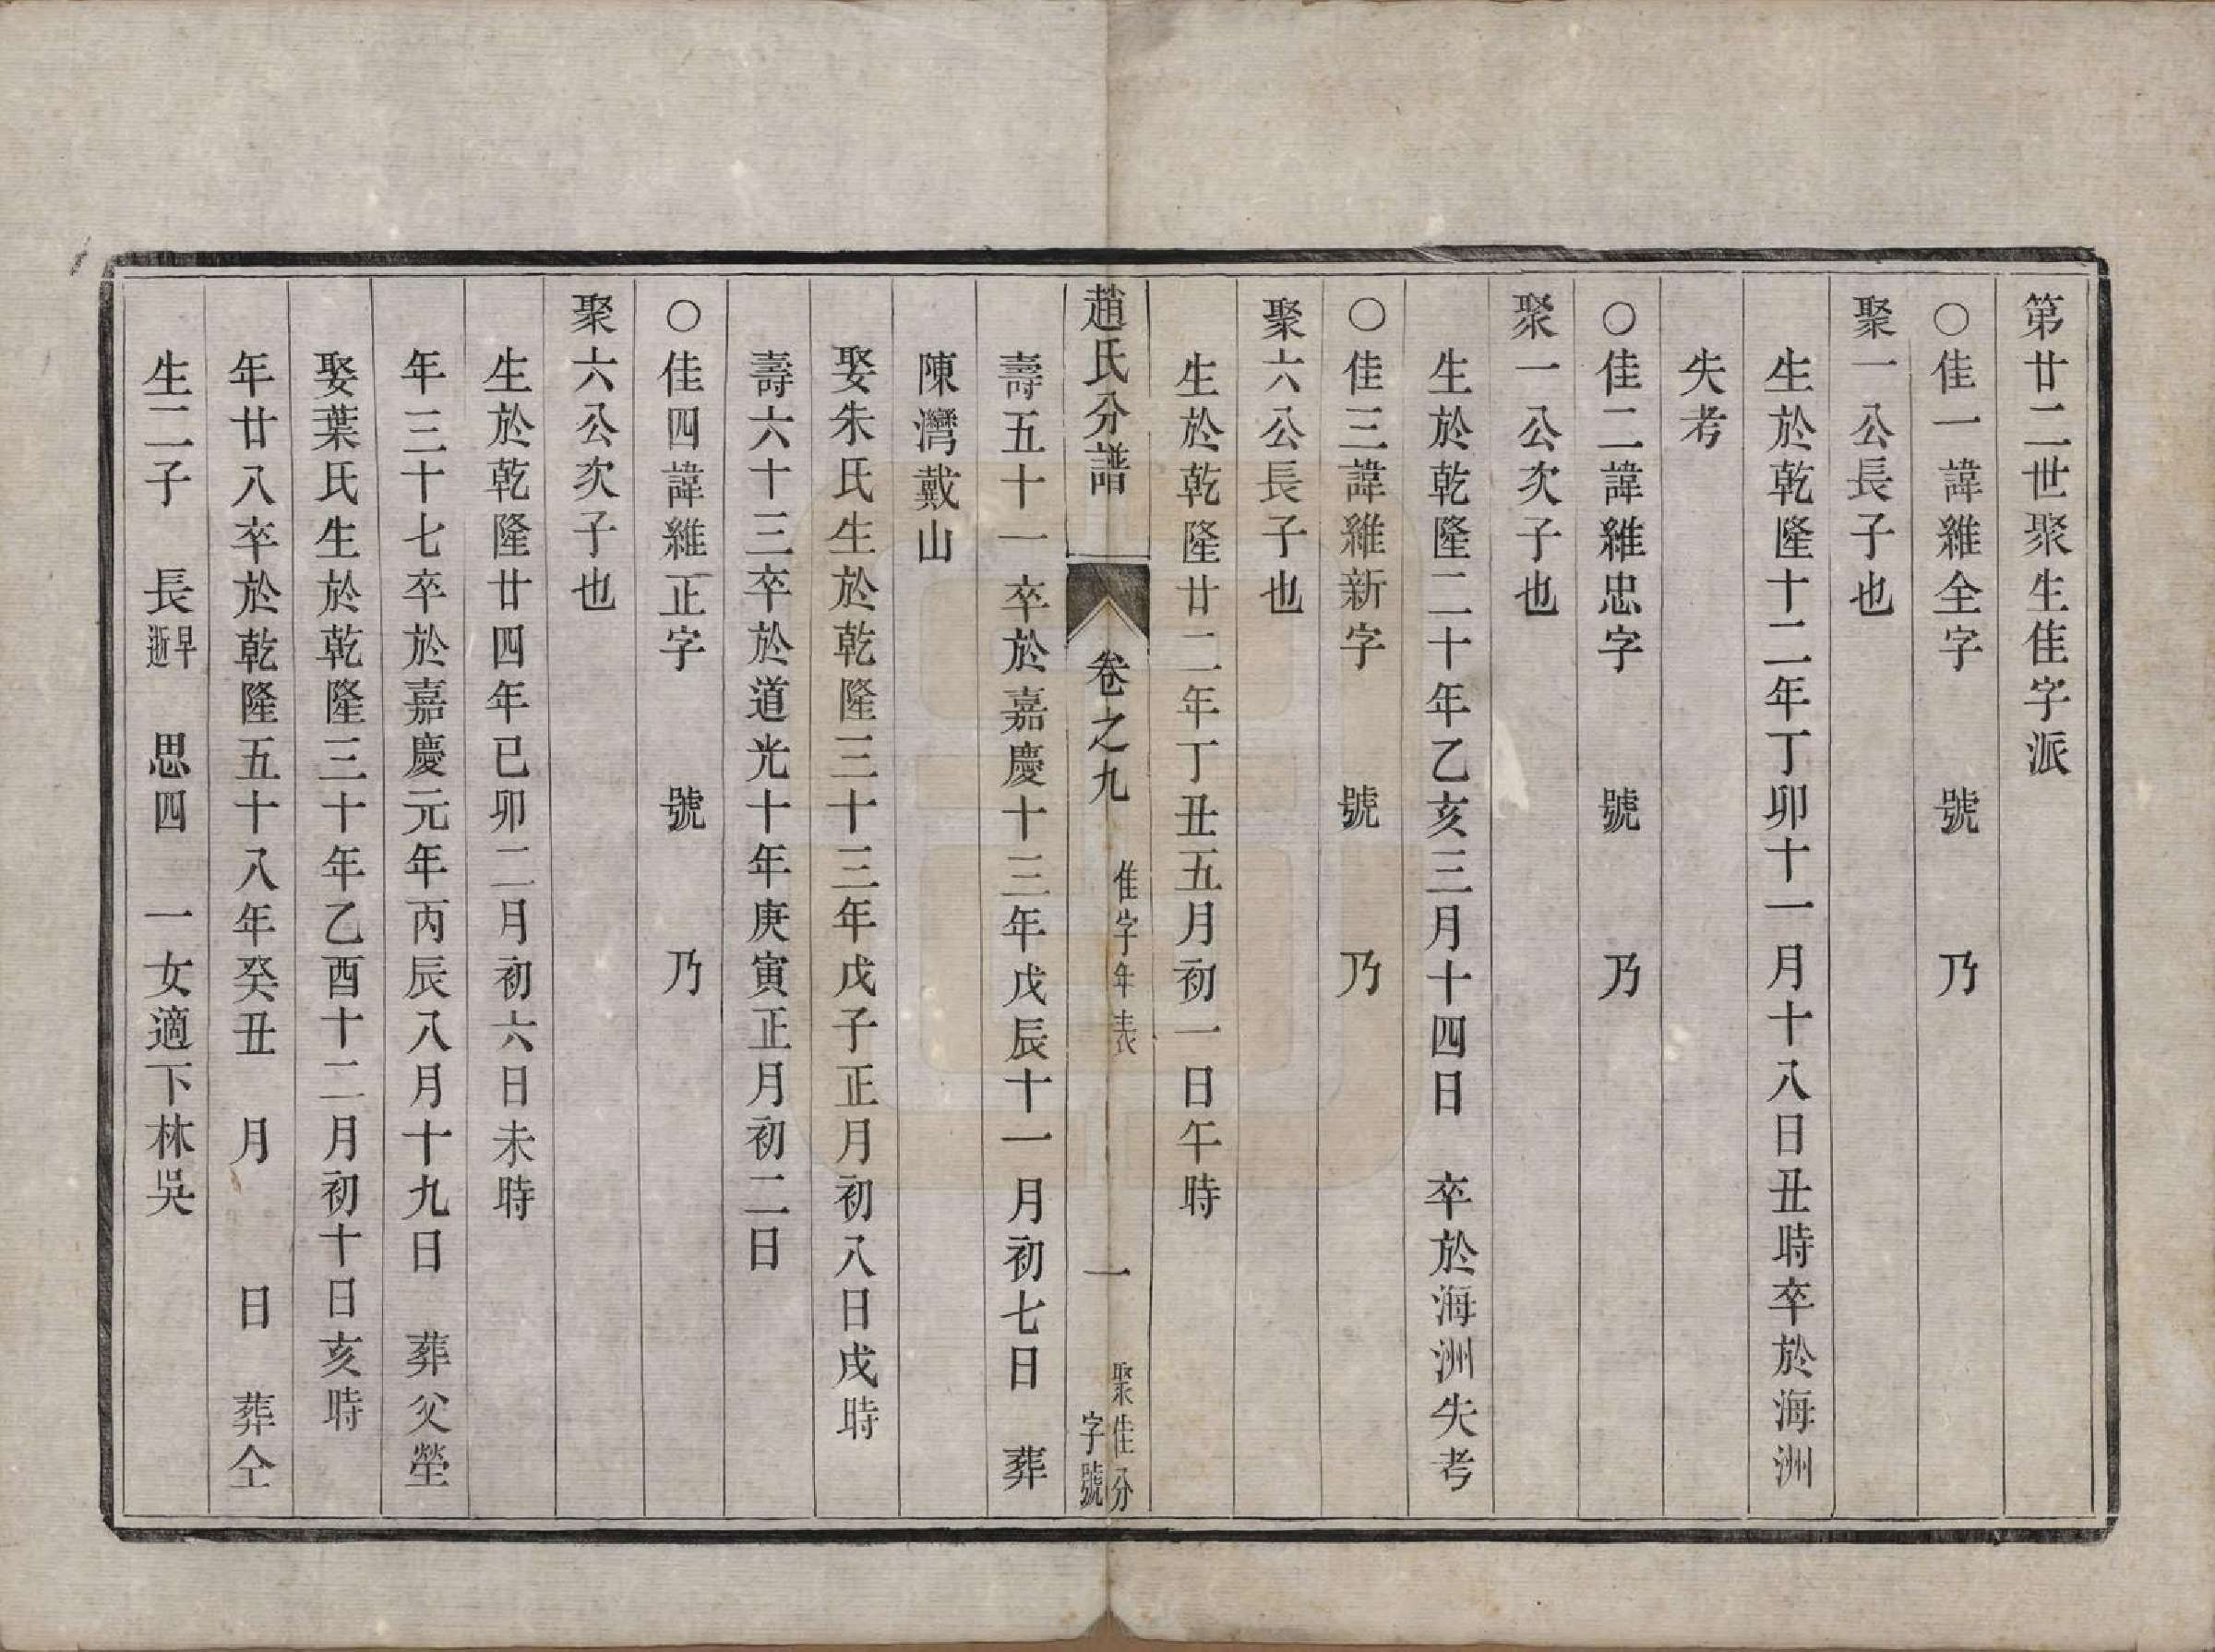 第廿二世聚生佳字派
○佳一諱維全字　號　乃
聚一公長子也
生於乾隆十二年丁卯十一月十八日丑時卒於海洲
失考
○佳二諱維忠字　號　乃
聚一公次子也
生於乾隆二十年乙亥三月十四日　卒於海洲失考
○佳三諱維新字　號　乃
聚六公長子也
生於乾隆廿二年丁丑五月初一日午時
趙氏分譜　卷之九　佳字年表　一　聚佳分字號
壽五十一　卒於嘉慶十三年戊辰十一月初七日　葬
陳灣戴山
娶朱氏生於乾隆三十三年戊子正月初八日戌時
壽六十三卒於道光十年庚寅正月初二日
○佳四諱維正字　號　乃
聚六公次子也
生於乾隆廿四年已卯二月初六日未時
年三十七卒於嘉慶元年丙辰八月十九日　葬父塋
娶葉氏生於乾隆三十年乙酉十二月初十日亥時
年廿八卒於乾隆五十八年癸丑　月　日　葬仝
生二子　長早逝　思四　一女適下林吳